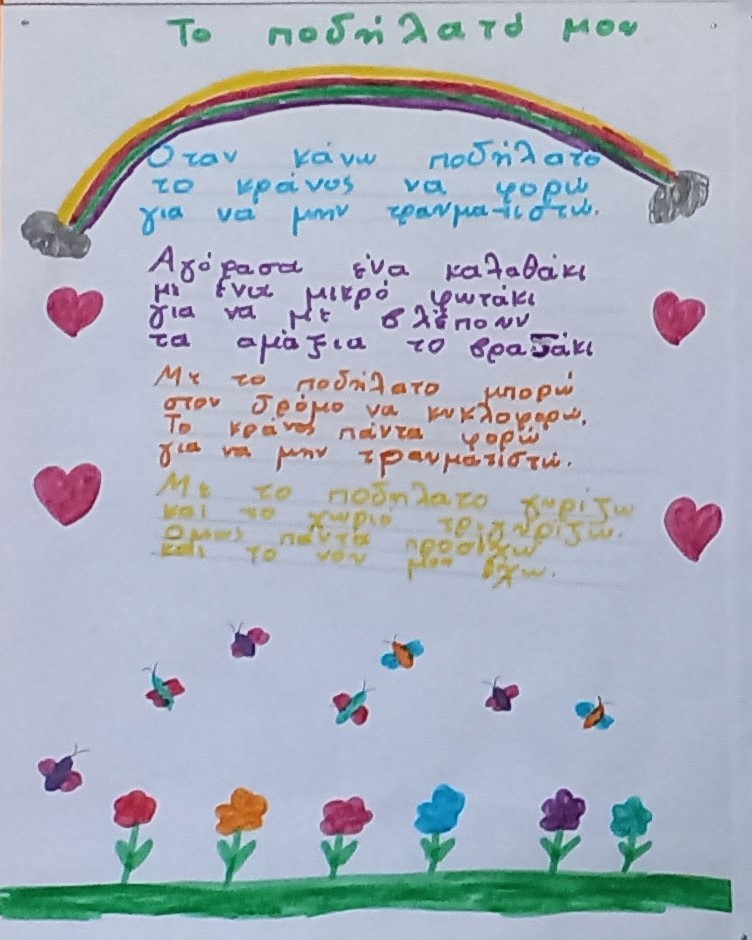 Το ποδήλατό μου
Όταν κάνω ποδήλατο
το κράνος να φορώ
για να μην τραυματιστώ.
Αγόρασα ένα καλαθάκι
με ένα μικρό φωτάκι
για να με βλέπουν
τα αμάξια το βραδάκι
Με το ποδήλατο μπορώ
στον δρόμο να κυκλοφορώ.
Το κράνος πάντα φορώ
για να μην τραυματιστώ.
Με το ποδήλατο γυρίζω
και το χωριό τριγυρίζω.
Όμως πάντα προσέχω
και το νου μου έχω.